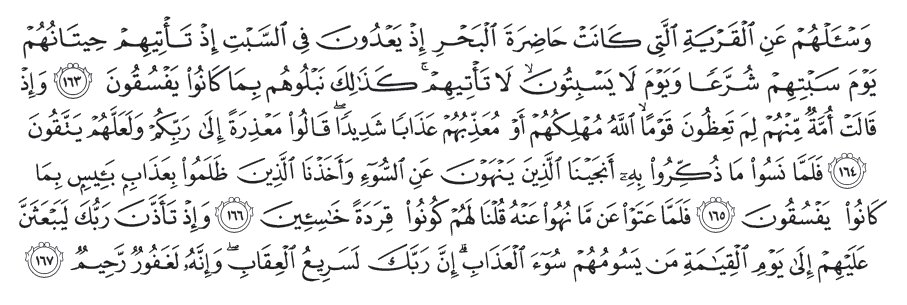 وَسْـَٔلْهُمْ عَنِ ٱلْقَرْيَةِ ٱلَّتِى كَانَتْ حَاضِرَةَ ٱلْبَحْرِ إِذْ يَعْدُونَ فِى ٱلسَّبْتِ إِذْ تَأْتِيهِمْ حِيتَانُهُمْ
يَوْمَ سَبْتِهِمْ شُرَّعًا وَيَوْمَ لَا يَسْبِتُونَ ۙ لَا تَأْتِيهِمْ ۚ كَذَٰلِكَ نَبْلُوهُم بِمَا كَانُوا۟ يَفْسُقُونَ ١٦٣ وَإِذْ
قَالَتْ أُمَّةٌ مِّنْهُمْ لِمَ تَعِظُونَ قَوْمًا ۙ ٱللَّهُ مُهْلِكُهُمْ أَوْ مُعَذِّبُهُمْ عَذَابًا شَدِيدًا ۖ قَالُوا۟ مَعْذِرَةً إِلَىٰ رَبِّكُمْ وَلَعَلَّهُمْ يَتَّقُونَ
١٦٤ فَلَمَّا نَسُوا۟ مَا ذُكِّرُوا۟ بِهِۦٓ أَنجَيْنَا ٱلَّذِينَ يَنْهَوْنَ عَنِ ٱلسُّوٓءِ وَأَخَذْنَا ٱلَّذِينَ ظَلَمُوا۟ بِعَذَابٍۭ بَـِٔيسٍۭ بِمَا
كَانُوا۟ يَفْسُقُونَ ١٦٥ فَلَمَّا عَتَوْا۟ عَن مَّا نُهُوا۟ عَنْهُ قُلْنَا لَهُمْ كُونُوا۟ قِرَدَةً خَٰسِـِٔينَ ١٦٦ وَإِذْ تَأَذَّنَ رَبُّكَ لَيَبْعَثَنَّ
عَلَيْهِمْ إِلَىٰ يَوْمِ ٱلْقِيَٰمَةِ مَن يَسُومُهُمْ سُوٓءَ ٱلْعَذَابِ ۗ إِنَّ رَبَّكَ لَسَرِيعُ ٱلْعِقَابِ ۖ وَإِنَّهُۥ لَغَفُورٌ رَّحِيمٌ ١٦٧